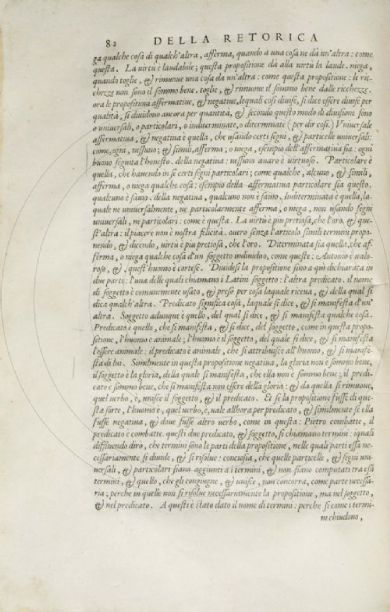 82 DELLA RETORICA
ga qualche cosa di qualch'altra, afferma, quando a una cosa ne dà un'altra: come
questa. La virtù è laudabile; questa propositione dà alla virtù la laude. niega,
quando toglie, & rimuove una cosa da un'altra: come questa propositione: le ric-
chezze non sono il sommo bene. toglie, & rimuove il sommo bene dalle ricchezze.
ora le propositioni affermative, & negative, lequali cosi divise, si dice essere divise per
qualità, si dividono ancora per quantità, & secondo questo modo di divisione sono
o universali, o particolari, o indeterminate, o determinate per dir cosi. Universale
affermativa, & negativa è quella, che usando certi segni, & particelle universali:
come, ogni, nessuno; & simili, afferma, o niega, essempio dell'affermativa sia: ogni
buono seguita l'honesto. della negativa: nessuno avaro è virtuoso. Particolare è
quella, che havendo in sè certi segni particolari; come, qualche, alcuno, & simili,
afferma, o niega qualche cosa: essempio della affermativa particolare sia questo.
qualcuno è savio. della negativa, qualcuno non è savio, indeterminata è quella, la-
quale ne universalmente, ne particolarmente afferma, o niega, non usando segni
universali, ne particolari: come è questa. La virtù è più pretiosa, che l'oro, & que-
st'altra: il piacere non è nostra felicità. overo senza l'articolo simili termini propo-
nendo, & dicendo, virtù è più pretiosa, che l'oro. Determinata sia quella, che af-
ferma, o niega qualche cosa d'un soggetto individuo, come queste: Antonio è valo-
roso, &, quest'huomo è cortese. Dividesi la propositione sino a qui dichiarata in
due parti: l'una delle quali chiamano i Latini soggetto: l'altra predicato. il nome
di soggetto è comunemente usato, & preso per cosa laquale riceva, & della qual si
dica qualch'altra. Predicato significa cosa, laquale si dice, & si manifesta d'un'
altra. Soggetto adunque è quello, del qual si dice, & si manifesta qualche cosa.
Predicato è quello, che si manifesta, & si dice, del soggetto, come in questa propo-
sitione, l'huomo è animale; l'huomo è il soggetto, del quale si dice, & si manifesta
l'essere animale: il predicato è animale, che si attribuisce all'huomo, & si manife-
sta di lui. Similmente in questa propositione negativa, la gloria non è sommo bene,
il soggetto è la gloria, della quale si manifesta, che ella non è sommo bene; il predi-
cato è sommo bene, che si manifesta non essere della gloria: & da quella si rimuove,
quel verbo, è, unisce il soggetto, & il predicato. Et se la propositione fusse di que-
sta sorte, l'huomo è, quel verbo, è, vale allhora per predicato, & similmente se ella
fusse negativa, & dove fusse altro verbo, come in questa: Pietro combatte, il
predicato è combatte. questi due predicato, & soggetto, si chiamano termini: iquali
diffiniendo diro, che termini sono le parti della propositione, nelle quali parti essa ne-
cessariamente si divide, & si risolve: conciosia, che quelle particelle, & segni uni-
versali, & particolari siano aggiunti a i termini, & non siano computati tra essi
termini, & quello, che gli congiugne, & unisce, non concorra, come parte necessa-
ria; perche in quelle non si risolve necessariamente la propositione, ma nel soggetto,
& nel predicato. A questi è stato dato il nome di termini: perche si come i termi-
ni chiudono,